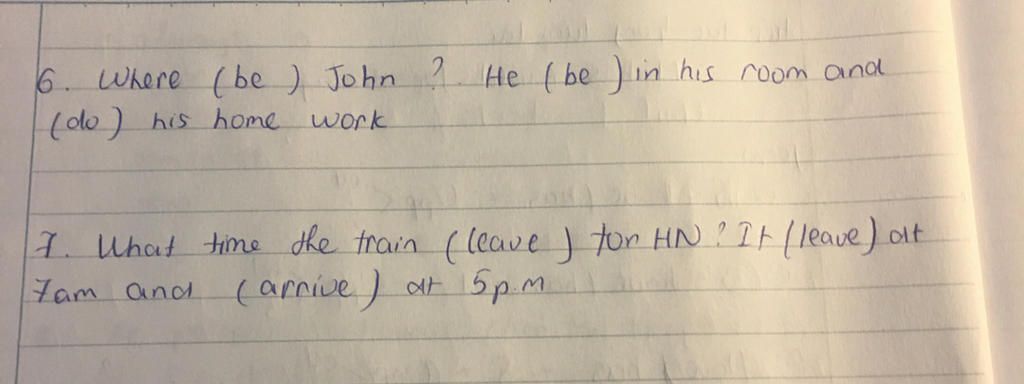 6. Where (be) John? He (be) in his room and
(do) his home work
7. What time the train (leave) for HN? It (leave) at
7am and (arrive) at 5p.m